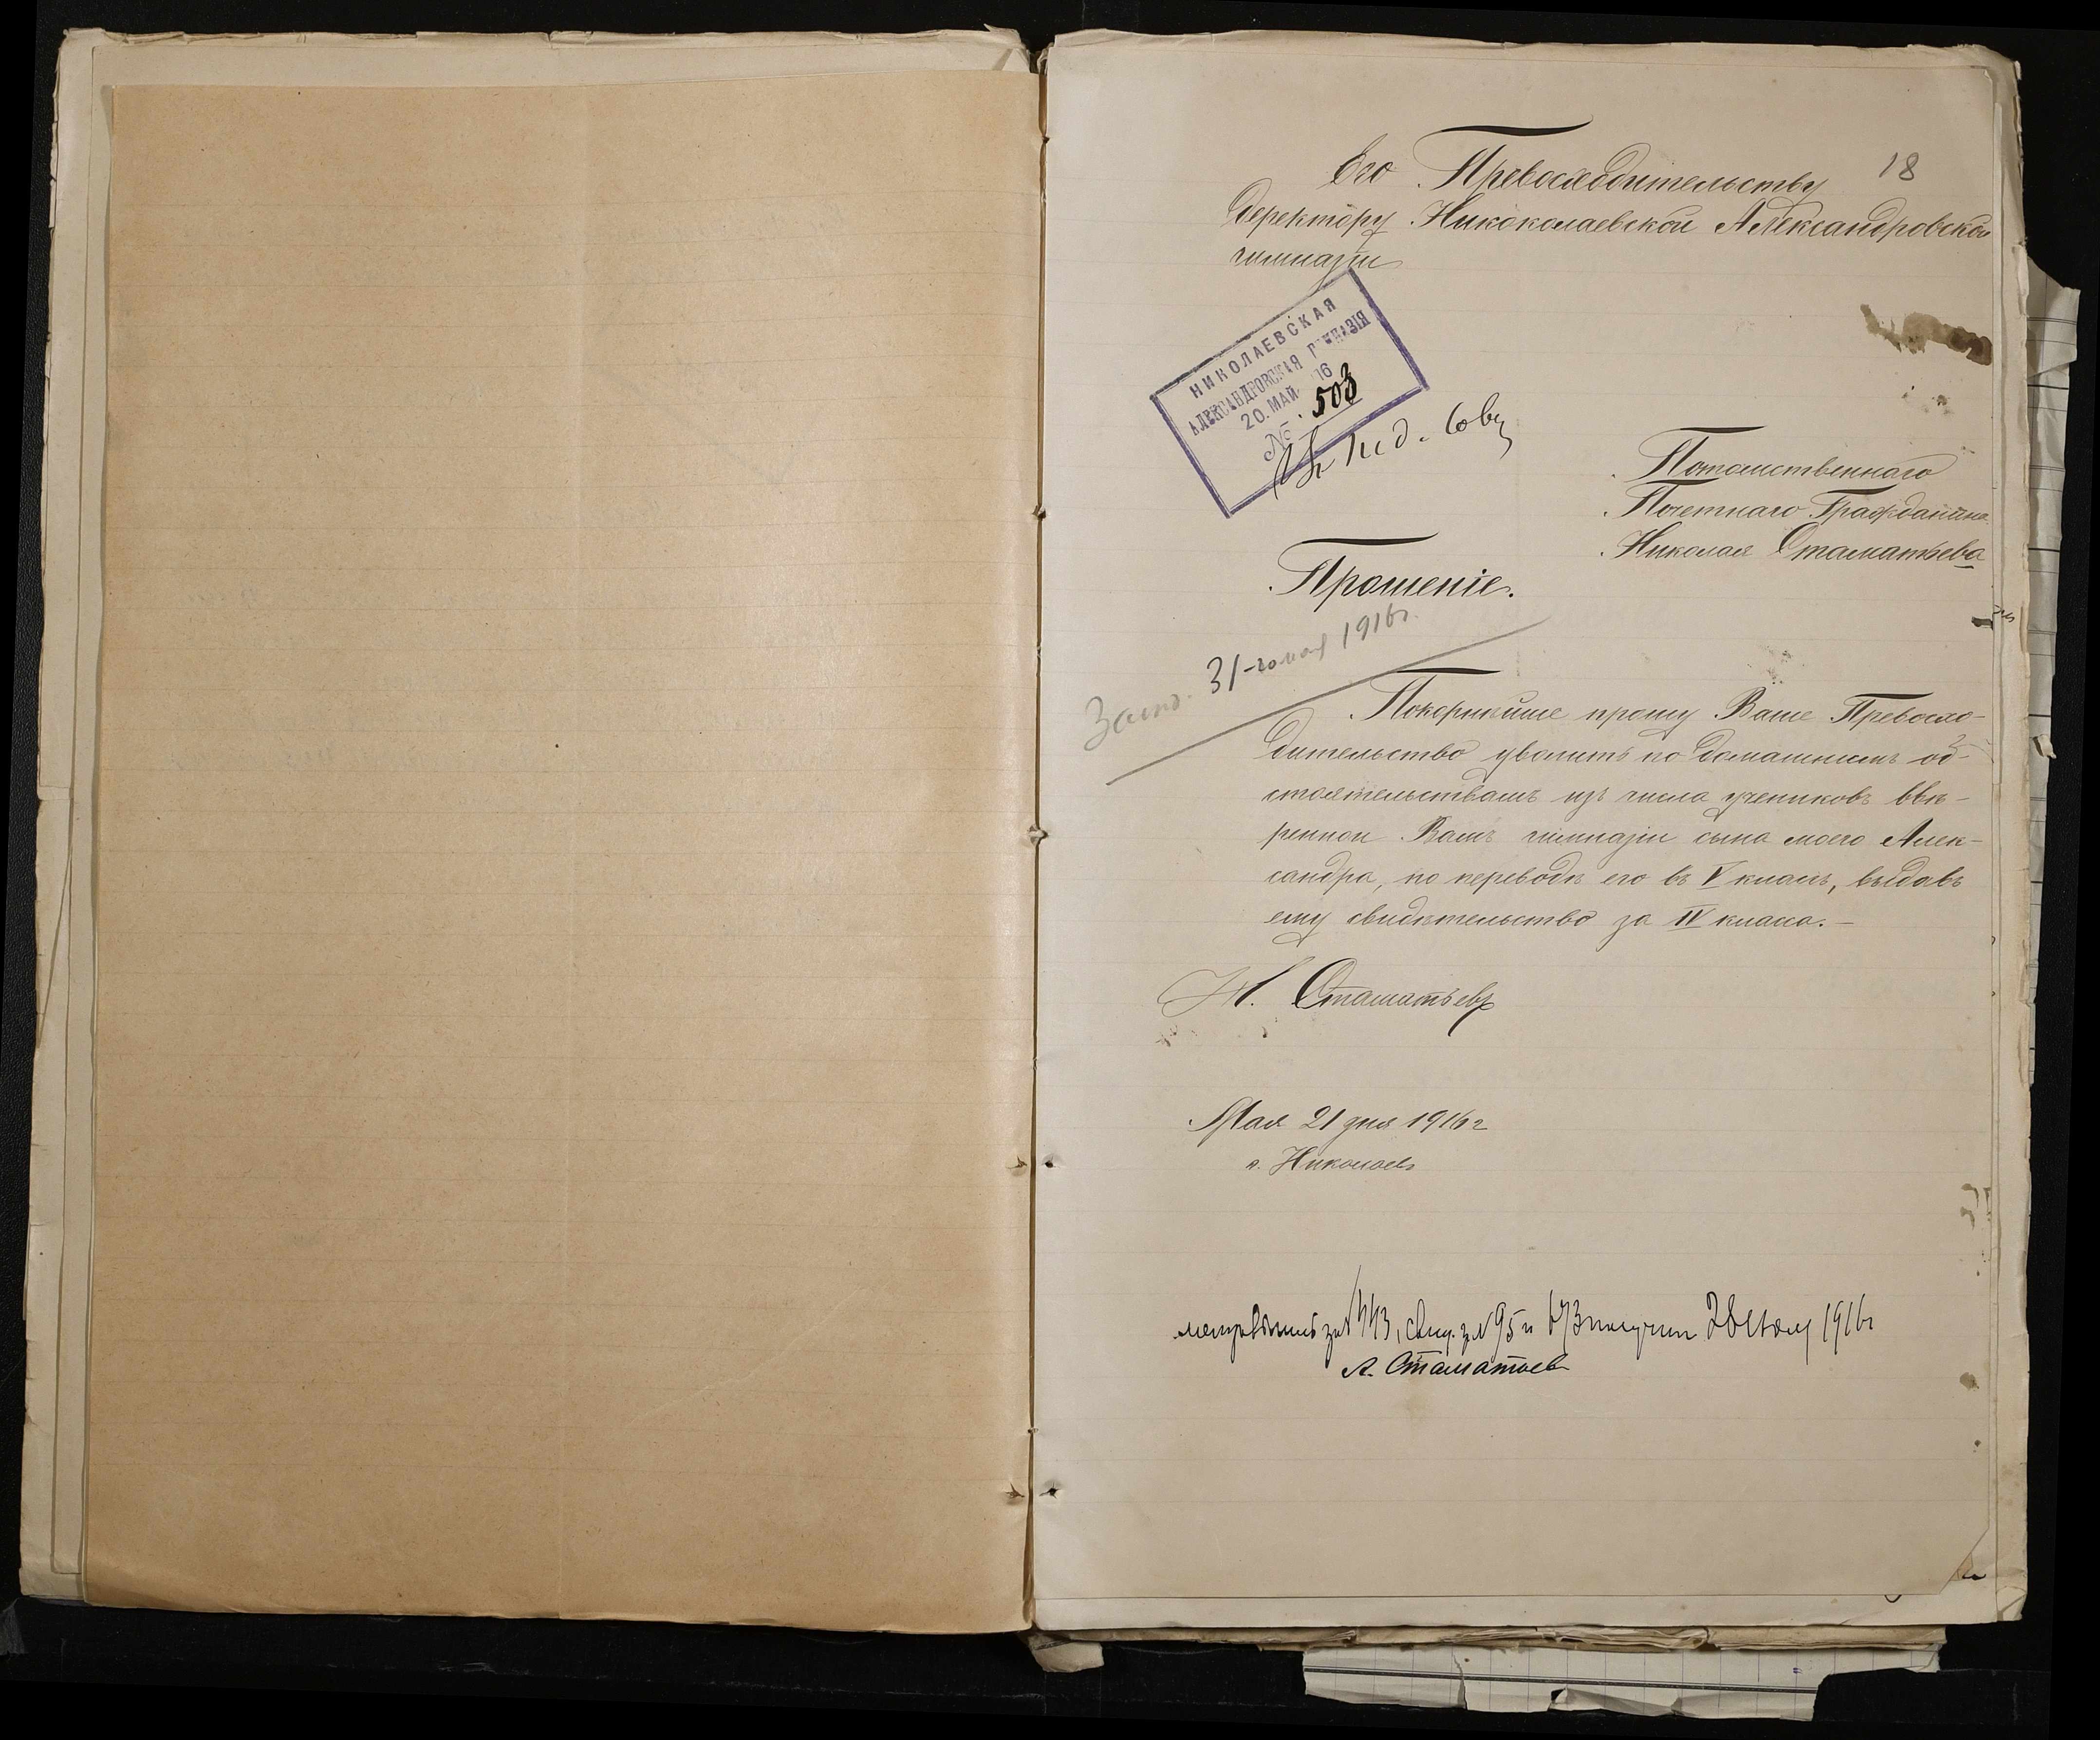 18
Его Превосходительству
Деректору Никоколаевской Александровской
гимназіи
НИКОЛАЕВСКАЯ
АЛЕКСАНДРОВСКАЯ ГИМНАЗІЯ
20. МАЙ 16
№ 503
Пед. Сов.
Потомственнаго
Почетнаго Гражданина
Николая Стаматьева
Прошеніе.
31-го мая 1916 г.
Покорнѣйше прошу Ваше Превосхо-
дительство уволить по домашнимъ об-
стоятельствамъ изъ числа учениковъ ввѣ-
ренной Вамъ гимназіи сына моего Алек-
сандра, по переводѣ его въ V классъ, выдавъ
ему свидѣтельство за IV класса.—
Н. Стаматьевъ
Мая 21 дня 1916 г
г. Николаевъ
свид. за № 95 и 673 получил 28 1916 г
А. Стаматьев